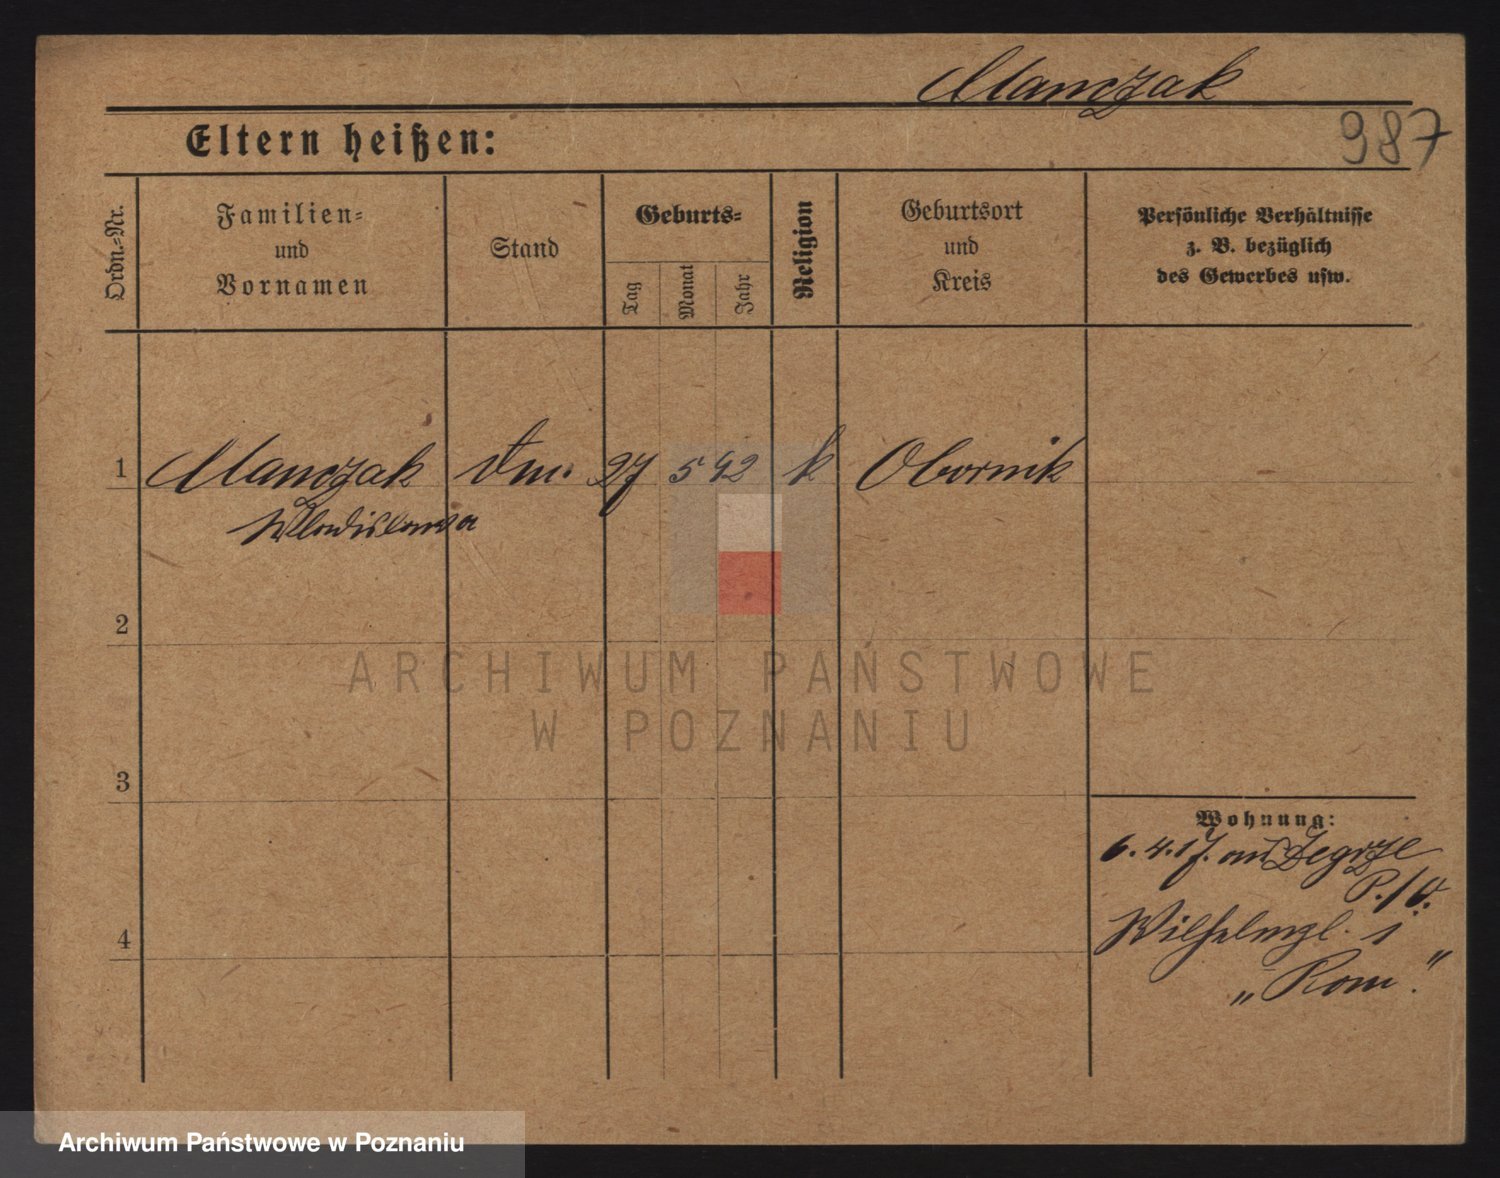 Manczak
987
Eltern heißen:
Ordn.-Nr.
Familien-
und
Vornamen
Stand
Geburts-
Tag
Monat
Jahr
Religion
Geburtsort
und
Kreis
Persönliche Verhältnisse
z. B. bezüglich
des Gewerbes usw.
1 Manczak 27 5 92 k Obornik
Wladislawa
2
ARCHIWUM PAŃSTWOWE
W POZNANIU
3
Wohnung:
6. 4. 17. aus Zegrze
Wilhelmpl. 1
„Rom".
4
Archiwum Państwowe w Poznaniu